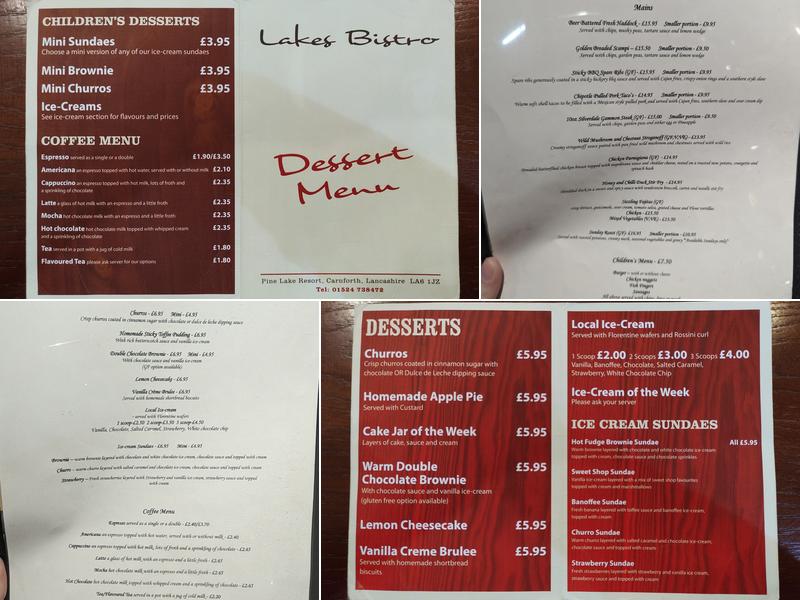 CHILDREN'S DESSERTS
Mini Sundaes £3.95
Choose a mini version of any of our ice-cream sundaes
Mini Brownie £3.95
Mini Churros £3.95
Ice-Creams
See ice-cream section for flavours and prices
COFFEE MENU
Espresso served as a single or a double £1.90/£3.50
Americana an espresso topped with hot water, served with or without milk £2.10
Cappuccino an espresso topped with hot milk, lots of froth and £2.35
a sprinkling of chocolate
Latte a glass of hot milk with an espresso and a little froth £2.35
Mocha hot chocolate milk with an espresso and a little froth £2.35
Hot chocolate hot chocolate milk topped with whipped cream £2.35
and a sprinkling of chocolate
Tea served in a pot with a jug of cold milk £1.80
Flavoured Tea please ask server for our options £1.80
Lakes Bistro
Dessert
Menu
Pine Lake Resort, Carnforth, Lancashire LA6 1JZ
Tel: 01524 738472
Mains
Beer Battered Fresh Haddock - £15.95 Smaller portion - £9.95
Served with chips, mushy peas, tartare sauce and lemon wedge
Golden Breaded Scampi - £15.50 Smaller portion - £9.50
Served with chips, garden peas, tartare sauce and lemon wedge
Sticky BBQ Spare Ribs (GF) - £15.95 Smaller portion - £9.95
Spare ribs generously coated in a sticky hickory bbq sauce and served with Cajun fries, crispy onion rings and a southern style slaw
Chipotle Pulled Pork Taco's - £14.95 Smaller portion - £9.95
Warm soft shell tacos to be filled with a Mexican style pulled pork and served with Cajun fries, southern slaw and sour cream dip
10oz Silverdale Gammon Steak (GF) - £15.00 Smaller portion - £9.50
Served with chips, garden peas and either egg or Pineapple
Wild Mushroom and Chestnut Stroganoff (GF/V/VE) - £13.95
Creamy stroganoff sauce paired with pan fried wild mushroom and chestnuts served with wild rice
Chicken Parmigiana (GF) - £14.95
Honey and Chilli Duck Stir Fry - £14.95
Sizzling Fajitas (GF)
Chicken - £15.50
Mixed Vegetables (V/VE) - £13.50
Sunday Roast (GF) - Smaller portion - £10.95
Served with roasted potatoes, creamy mash, seasonal vegetables and gravy *Available Sundays only*
Children's Menu - £7.50
Burger - with or without cheese
Chicken nuggets
Fish Fingers
Sausages
Churros - £6.95 Mini - £4.95
Crisp churros coated in cinnamon sugar with chocolate or dulce de leche dipping sauce
Homemade Sticky Toffee Pudding - £6.95
With rich butterscotch sauce and vanilla ice cream
Double Chocolate Brownie - £6.95 Mini - £4.95
With chocolate sauce and vanilla ice cream
(GF option available)
Lemon Cheesecake - £6.95
Vanilla Crème Brulee - £6.95
Served with homemade shortbread biscuits
Local Ice-cream
- served with Florentine wafers
1 scoop £2.50 2 scoop £3.50 3 scoop £4.50
Vanilla, Chocolate, Salted Caramel, Strawberry, White chocolate chip
Ice-cream Sundaes - £6.95 Mini - £4.95
Brownie – warm brownie layered with chocolate and white chocolate ice cream, chocolate sauce and topped with cream
Churro – warm churro layered with salted caramel and chocolate ice cream, chocolate sauce and topped with cream
Strawberry – Fresh strawberries layered with Strawberry and vanilla ice cream, strawberry sauce and topped
with cream
Coffee Menu
Espresso served as a single or a double - £2.40/£3.70
Americana an espresso topped with hot water, served with or without milk - £2.40
Cappuccino an espresso topped with hot milk, lots of froth and a sprinkling of chocolate - £2.65
Latte a glass of hot milk with an espresso and a little froth - £2.65
Mocha hot chocolate milk with an espresso and a little froth - £2.65
Hot Chocolate hot chocolate milk topped with whipped cream and a sprinkling of chocolate - £2.65
Tea/Flavoured Tea served in a pot with a jug of cold milk - £2.20
DESSERTS
Churros £5.95
Crisp churros coated in cinnamon sugar with
chocolate OR Dulce de Leche dipping sauce
Homemade Apple Pie £5.95
Served with Custard
Cake Jar of the Week £5.95
Layers of cake, sauce and cream
Warm Double £5.95
Chocolate Brownie
With chocolate sauce and vanilla ice-cream
(gluten free option available)
Lemon Cheesecake £5.95
Vanilla Creme Brulee £5.95
Served with homemade shortbread
biscuits
Local Ice-Cream
Served with Florentine wafers and Rossini curl
1 Scoop £2.00 2 Scoops £3.00 3 Scoops £4.00
Vanilla, Banoffee, Chocolate, Salted Caramel,
Strawberry, White Chocolate Chip
Ice-Cream of the Week
Please ask your server
ICE CREAM SUNDAES
Hot Fudge Brownie Sundae All £5.95
Warm brownie layered with chocolate and white chocolate ice-cream
topped with cream, chocolate sauce and chocolate sprinkles
Sweet Shop Sundae
Vanilla ice-cream layered with a mix of sweet shop favourites
topped with cream and marshmallows
Banoffee Sundae
Fresh banana layered with toffee sauce and banoffee ice-cream,
topped with cream
Churro Sundae
Warm churro layered with salted caramel and chocolate ice-cream,
chocolate sauce and topped with cream
Strawberry Sundae
Fresh strawberries layered with strawberry and vanilla ice-cream,
strawberry sauce and topped with cream